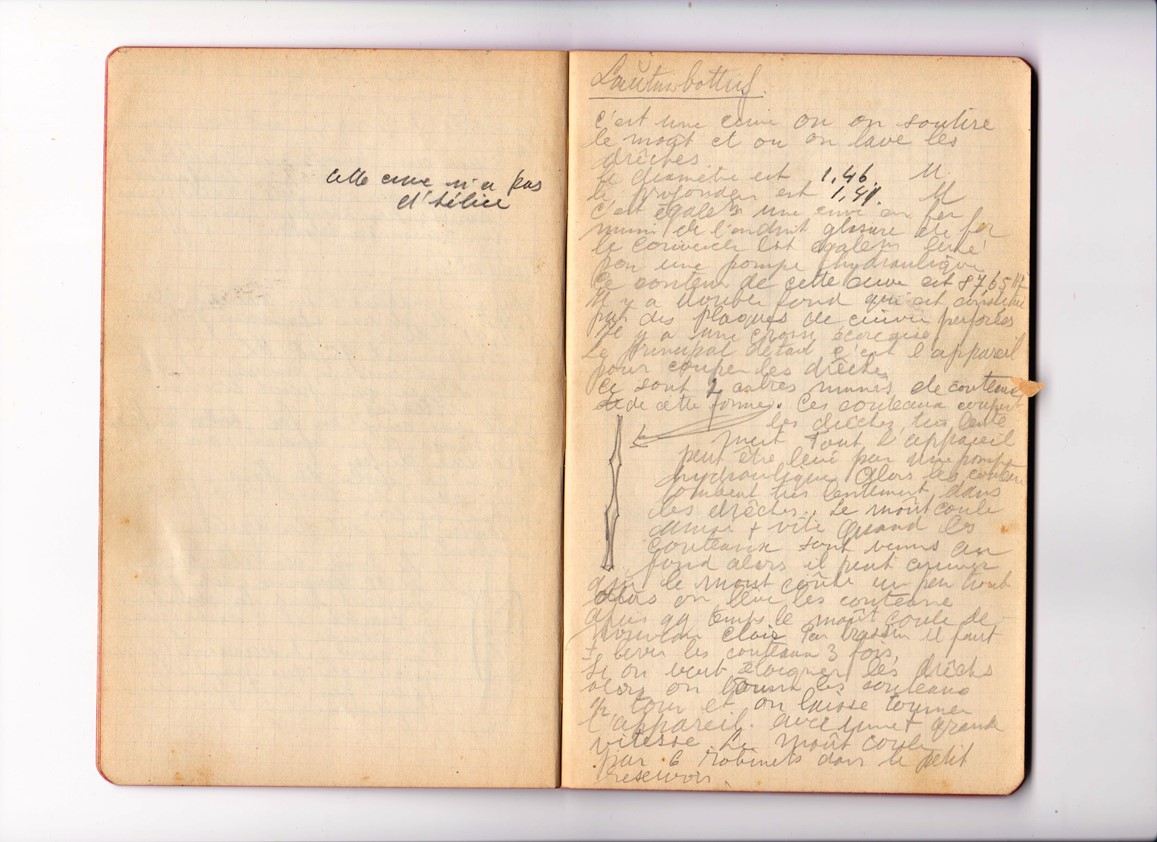 cette cuve n'a pas
d'hélice
Lauterbottig.
c'est une cuve ou on soutire
le moût et ou on lave les
drêches
le diamètre est 1,46 M.
la profondeur est 1,41. M
C'est égalet une cuve en fer
muni de l'endroit
le couvercle est égalem levé
par une pompe hydraulique
Le contenu de cette cuve est 87,65 Hl
Il y a double fond qui est constitué
par des plaques de cuivre perforées
Il y a une
Le principal détail c'est l'appareil
pour couper les drêches
ce sont 2 autres munis de couteaux
de cette forme. Ces couteaux coupent
les drêches, très lente
ment Tout l'appareil
peut être levé par une pompe
hydraulique Alors les couteaux
tombent très lentement dans
les drêches. Le moût coule
+ vite Quand les
couteaux sont venus au
fond alors il peut arriver
que le moût coule un peu
alors on lève les couteaux
après qq temps le moût coule de
nouveau clair Par brassin il faut
± lever les couteaux 3 fois.
Si on veut éloigner les drêches
alors on tourne les couteaux
¼ tour et on laisse tourner
l'appareil. avec une + grande
vitesse. Le moût coule
par 6 robinets dans le petit
reservoir.